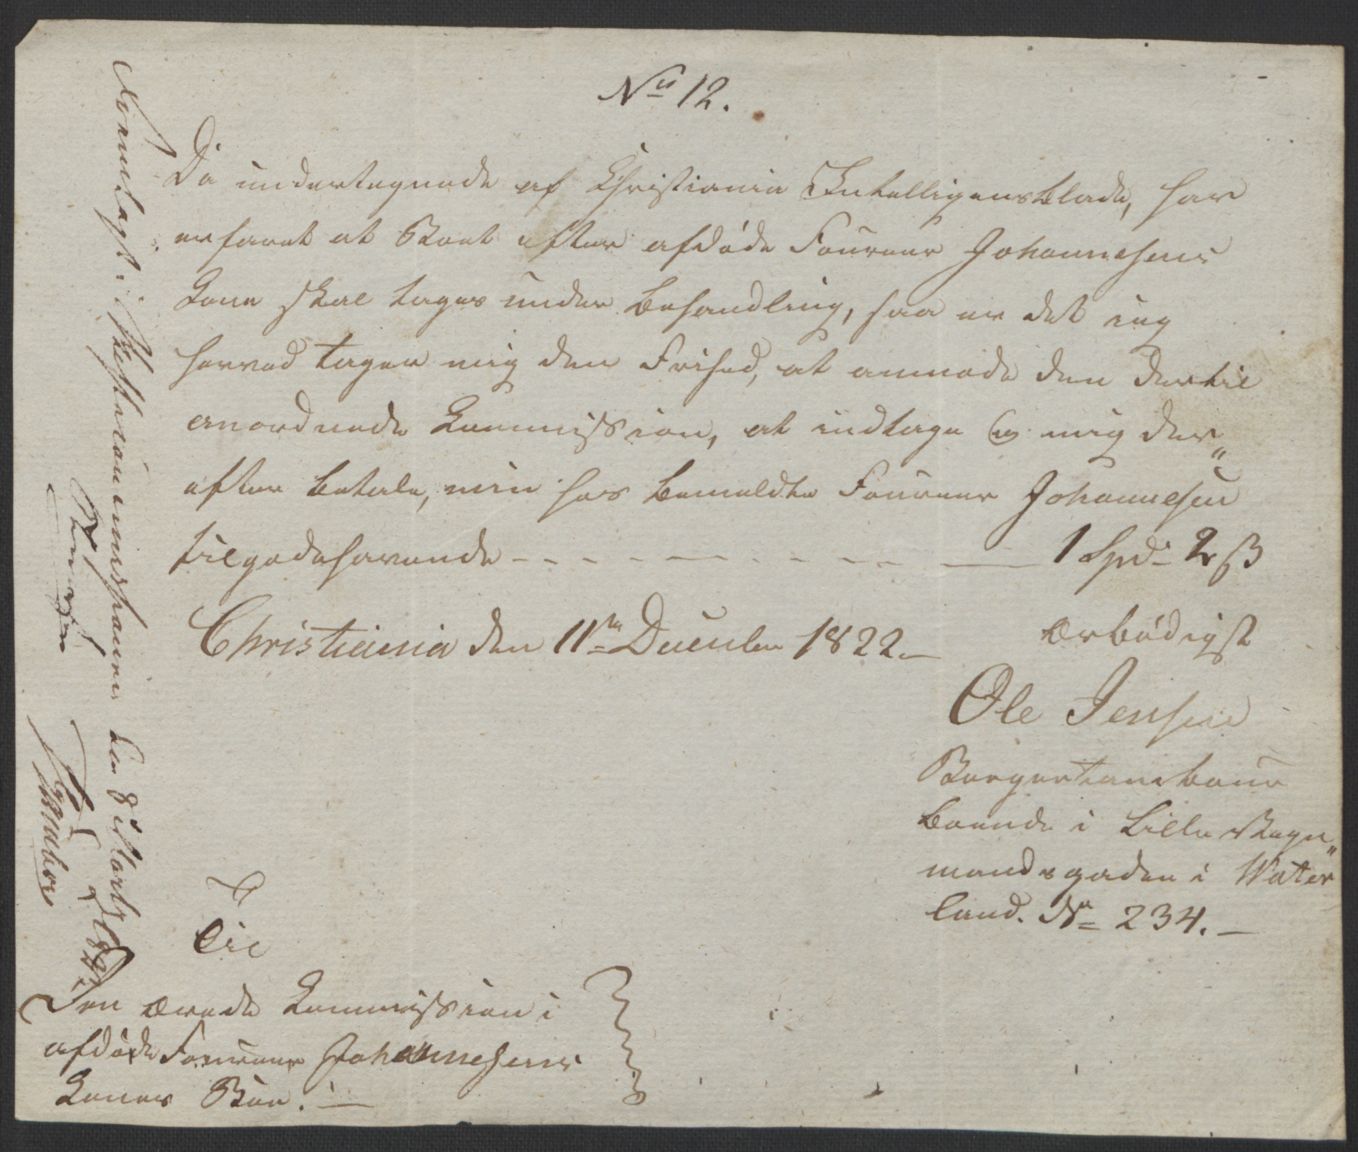 No 12.
Da undertegnede af Christiania Intelligensblade, har
erfaret at Boet efter afdøde Foureer Johannesens
Kone skal tages under Behandling, saa er det ieg
herved tager mig den Frihed, at anmode den dertil
anordnede Kommission, at indtage og mig der„
efter betale, min hos bemeldte Foureer Johannesen
tilgodehavende - - - - - - - - 1 Spd 2 ß
Christiania den 11te December 1822.
ærbødigst
Ole Jensen
Borgertambour
boende i Lille Vogn„
mandsgaden i Water
land. No 234.
Til
Den ærede Kommission i
afdøde Foureer Johannesens
Kones Boe.
Fremlagt i Skiftesamlingen den 8 Marts